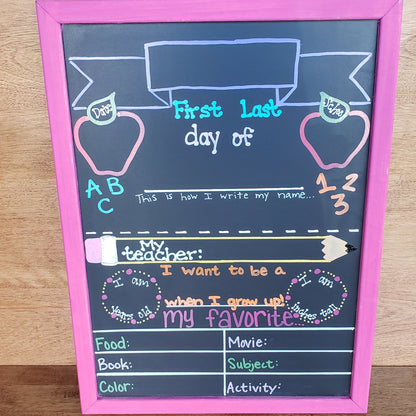 First Last
Date
Date
day of
A B
C
1 2
3
This is how I write my name...
My
teacher:
I want to be a
I am
years old
I am
inches tall
when I grow up!
my favorite...
Food:
Movie:
Book:
Subject:
Color:
Activity: